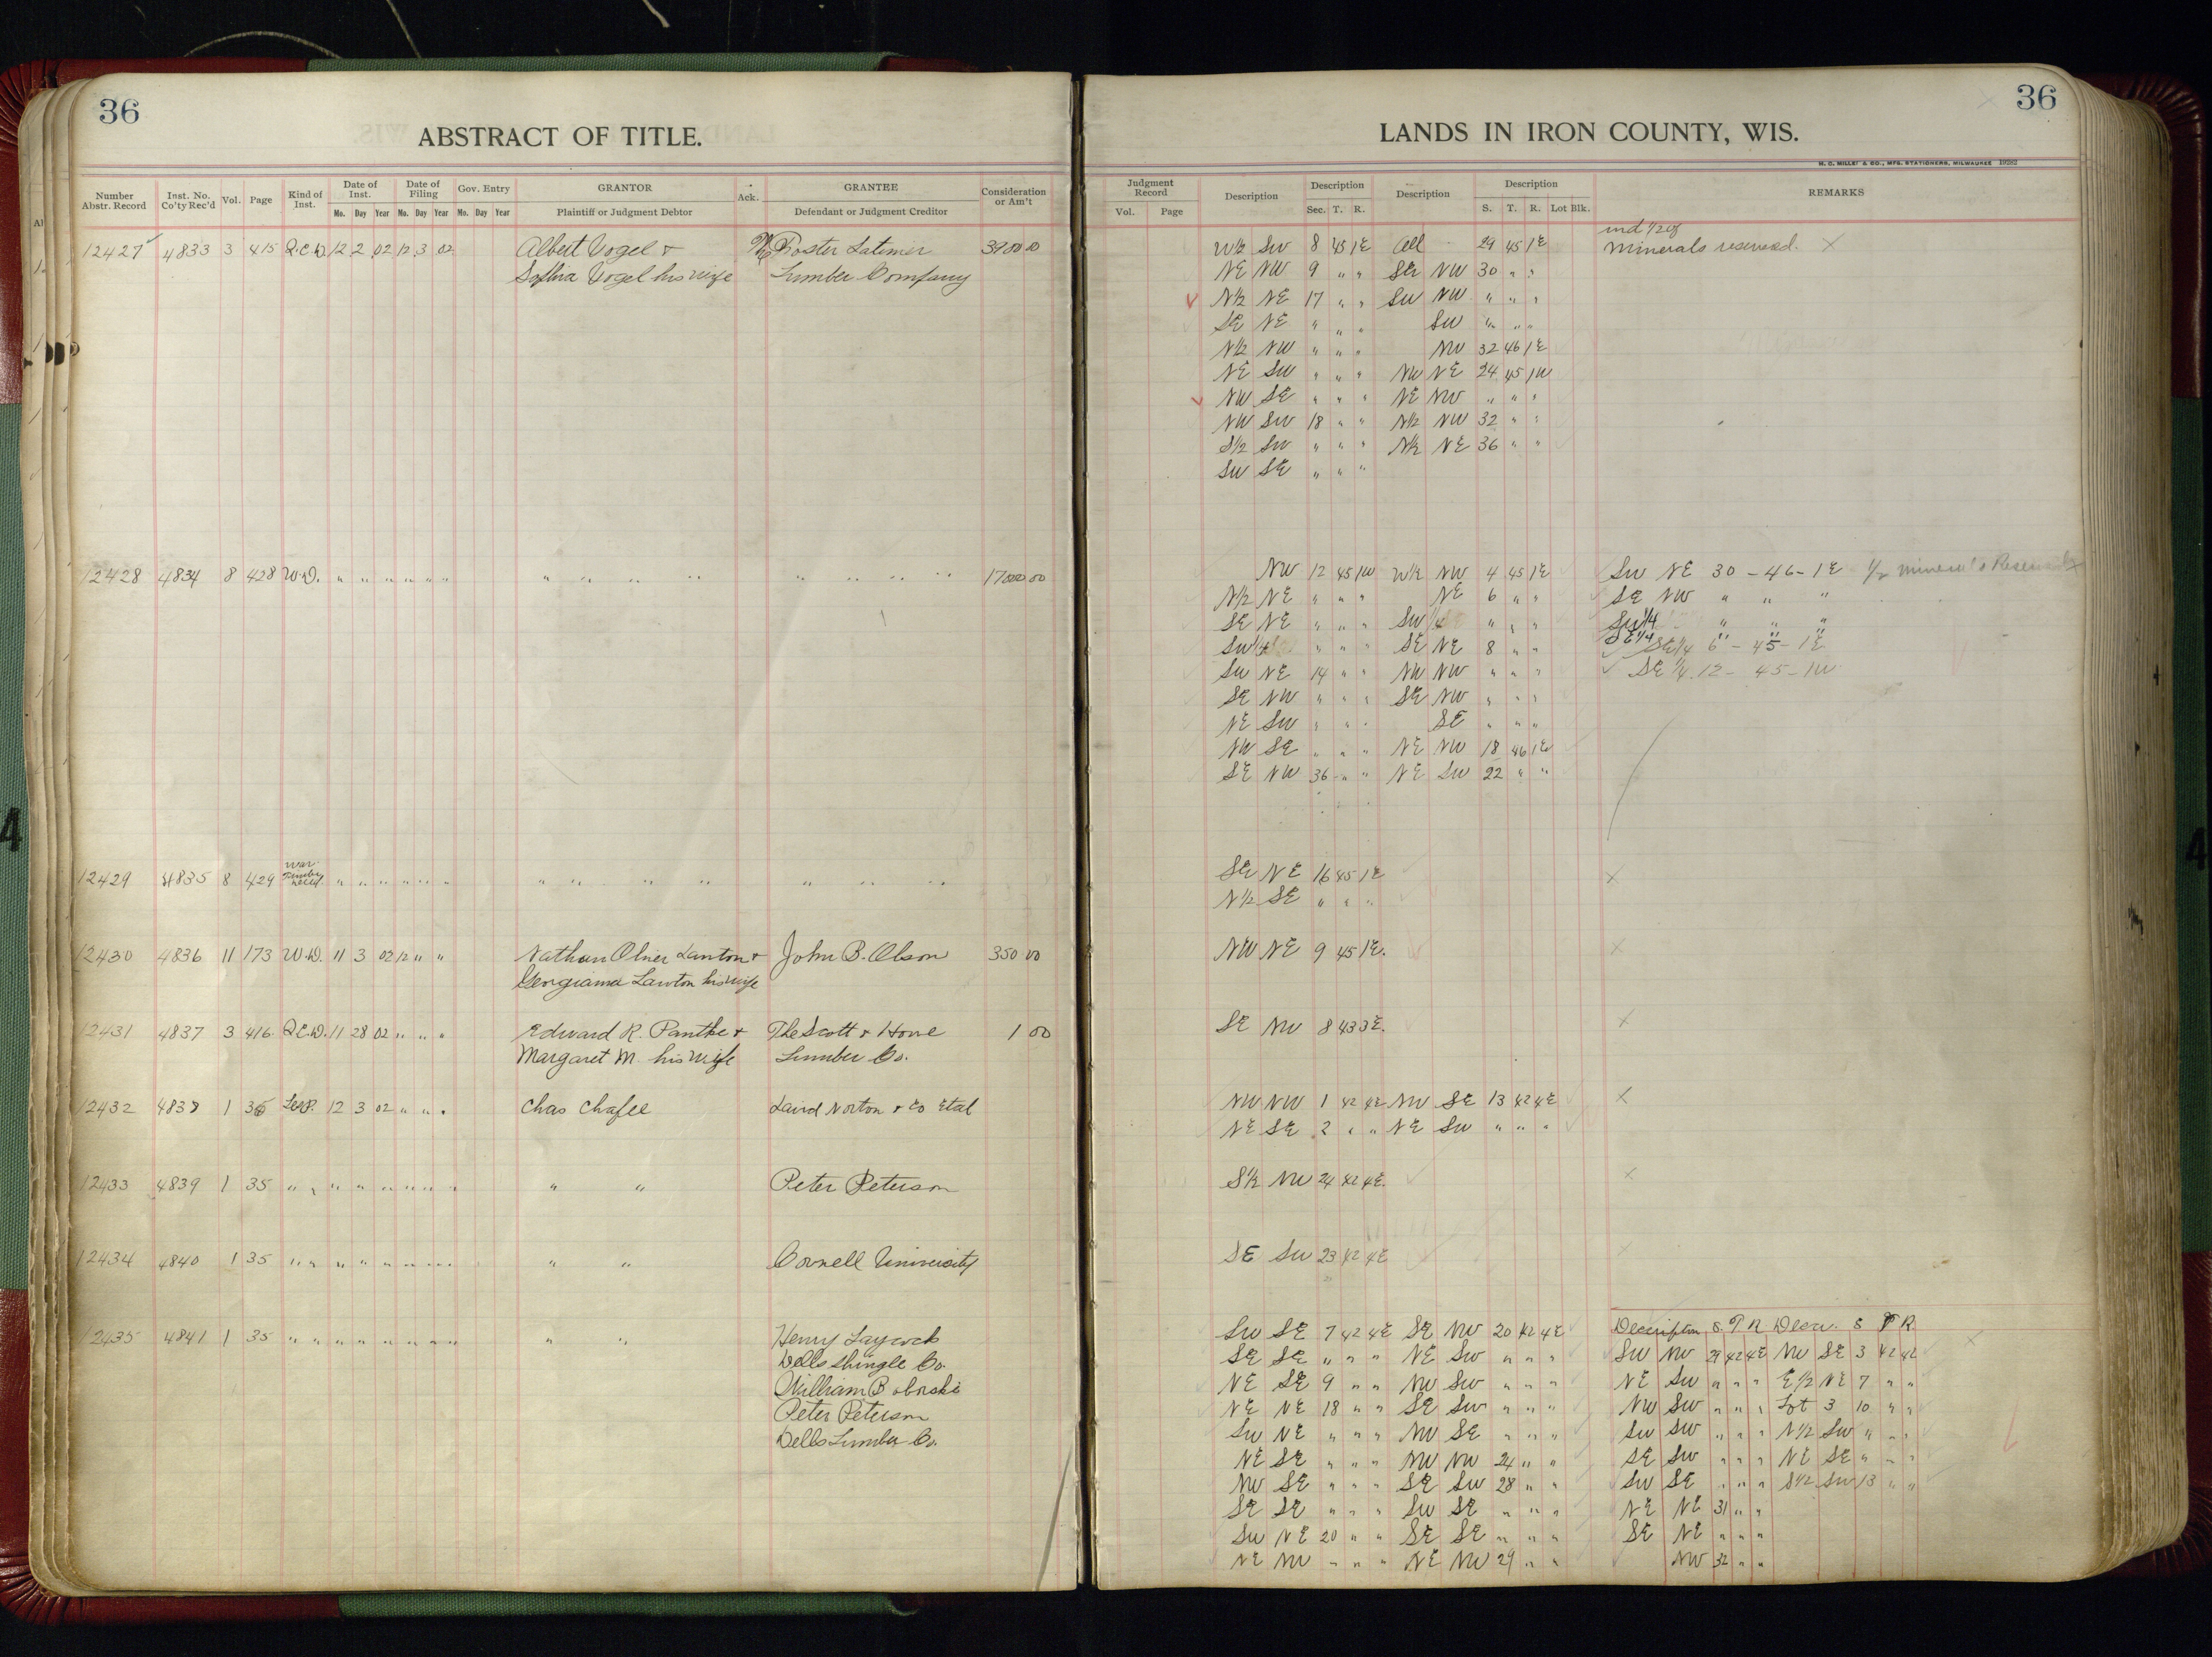 36
ABSTRACT OF TITLE.
Number Abstr. Record Inst. No. Co'ty Rec'd Vol. Page Kind of Inst. Date of Inst. Mo. Day Year Date of Filing Mo. Day Year Gov. Entry Mo. Day Year GRANTOR Plaintiff or Judgment Debtor Ack. GRANTEE Defendant or Judgment Creditor Consideration or Am't
12427 4833 3 415 Q.C.D. 12 2 02 12 3 02 Albert Vogel & The Foster Latimer 3900 00
Sophia Vogel his wife Lumber Company
12428 4834 8 428 W.D. " " " " " " " " " " " " " " 17000 00
12429 4835 8 429 War. Timber Deed. " " " " " " " " " " " " "
12430 4836 11 173 W.D. 11 3 02 12 " " Nathan Oliver Lawton & John B. Olson 350 00
Georgiama Lawton his wife
12431 4837 3 416 Q.C.D. 11 28 02 " " " Edward R. & The Scott & Howe 1 00
Margaret M. his wife Lumber Co.
12432 4838 1 35 12 3 02 " " " Chas Chafee Laird Norton & Co Etal
12433 4839 1 35 " " " " " " " " " " Peter Peterson
12434 4840 1 35 " " " " " " " " " " Cornell University
12435 4841 1 35 " " " " " " " " " " Henry Laycock
Dells Shingle Co.
William
Peter Peterson
Dells Lumber Co.
36
LANDS IN IRON COUNTY, WIS.
H. C. MILLER & CO., MFG. STATIONERS, MILWAUKEE 19282
Judgment Record Vol. Page Description Description Sec. T. R. Description Description S. T. R. Lot Blk. REMARKS
und 1/2 of
W½ SW 8 45 1E All 29 45 1E Minerals reserved. X
NE NW 9 " " SE NW 30 " "
N½ NE 17 " " SW NW " " "
SE NE " " " SW " " "
N½ NW " " " NW 32 46 1E
NE SW " " " NW NE 24 45 1W
NW SE " " " NE NW " " "
NW SW 18 " " N½ NW 32 " "
S½ SW " " " N½ NE 36 " "
SW SE " " "
NW 12 45 1W W½ NW 4 45 1E SW NE 30 - 46 - 1E
N½ NE " " " NE 6 " " SE NW " " "
SE NE " " " SW 1/4 " " " SW 1/4 " " "
SW 1/4 " " " SE NE 8 " " SE 1/4 " " "
SE 1/4 6 - 45 - 1E
SW NE 14 " " NW NW " " " SE 1/4 12 - 45 - 1W
SE NW " " " SE NW " " "
NE SW " " " SE " " "
NW SE " " " NE NW 18 46 1E
SE NW 36 " " NE SW 22 " "
SE NE 16 45 1E X
N½ SE " " "
NW NE 9 45 1E. X
SE NW 8 43 3E. X
NW NW 1 42 4E NW SE 13 42 4E X
NE SE 2 " " NE SW " " "
S½ NW 24 42 4E. X
SE SW 23 42 4E
Description S. T R Descr. S T R
SW SE 7 42 4E SE NW 20 42 4E SW NW 29 42 4E NW SE 3 42 42
SE SE " " " NE SW " " " NE SW " " " E½ NE 7 " "
NE SE 9 " " NW SW " " " NW SW " " " Lot 3 10 " "
NE NE 18 " " SE SW " " " SW SW " " " N½ SW " " "
SW NE " " " NW SE " " " SE SW " " " NE SE " " "
NE SE " " " NW NW 24 " " SW SE " " " S½ SW 13 " "
NW SE " " " SE SW 28 " " NE NE 31 " "
SE SE " " " SW SE " " " SE NE " " "
SW NE 20 " " SE SE " " " NW 32 " "
NE NW " " " NE NW 29 " "